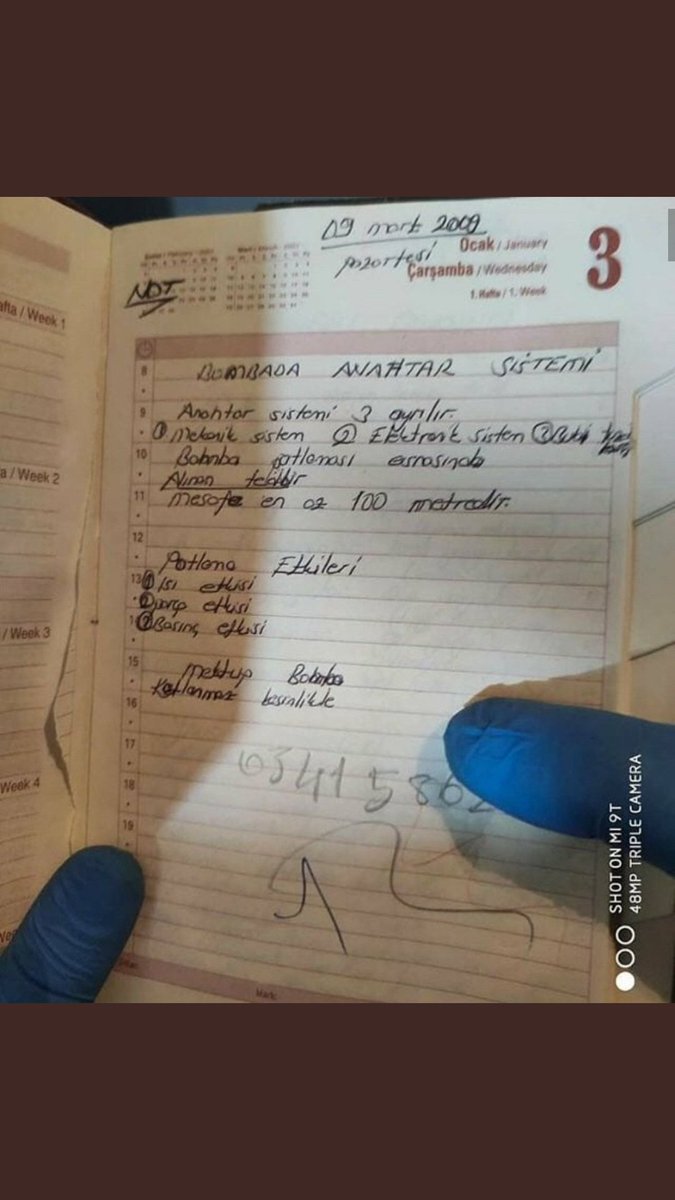 09 mart 2009
pazartesi
Ocak / January
Çarşamba / Wednesday
3
1. Hafta / 1. Week
NOT
afta / Week 1
a / Week 2
/ Week 3
Week 4
8 BOMBADA ANAHTAR SİSTEMİ
9 Anahtar sistemi 3 ayrılır.
① Mekanik sistem ② Elektronik sistem ③
10 Bobmba patlaması esnasında
Alınan tedbir
11 mesafe en az 100 metredir.
12
Patlama Etkileri
13 ① Isı etkisi
② parça etkisi
14 ③ Basınç etkisi
15
Mektup Bobmba
16 Katlanmaz kesinlikle
17
18
19
SHOT ON MI 9T
48MP TRIPLE CAMERA